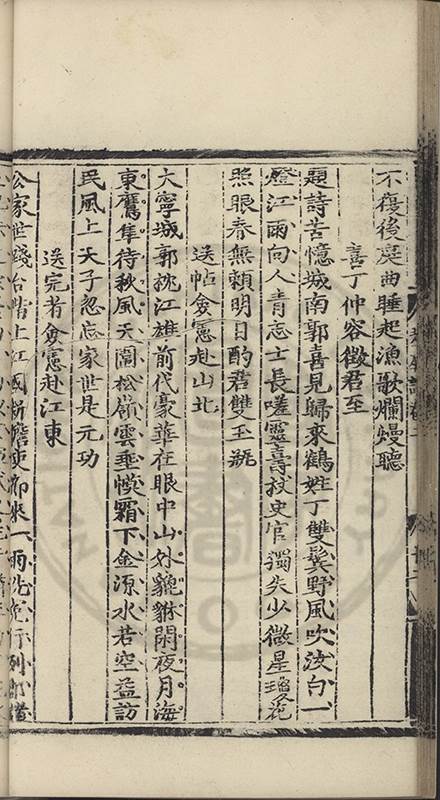 不復後塵曲睡起漁歌爛熳聽
喜丁仲容徵君至
題詩苦憶城南郭喜見歸來鶴姓丁雙鬢野風吹汝白一
燈江雨向人青志士長嗟靈壽杖史官獨失少微星瓊花
照眼春無賴明日酌君雙玉瓶
送帖僉憲赴山北
大寧城郭枕江雄前代豪華在眼中山外貔貅閑夜月海
東鷹隼待秋風天圍松嶺雲垂幙霜下金源水若空益訪
民風上天子忽忘家世是元功
送完者僉憲赴江東
公家世踐台階上江國新瞻使節來一雨花